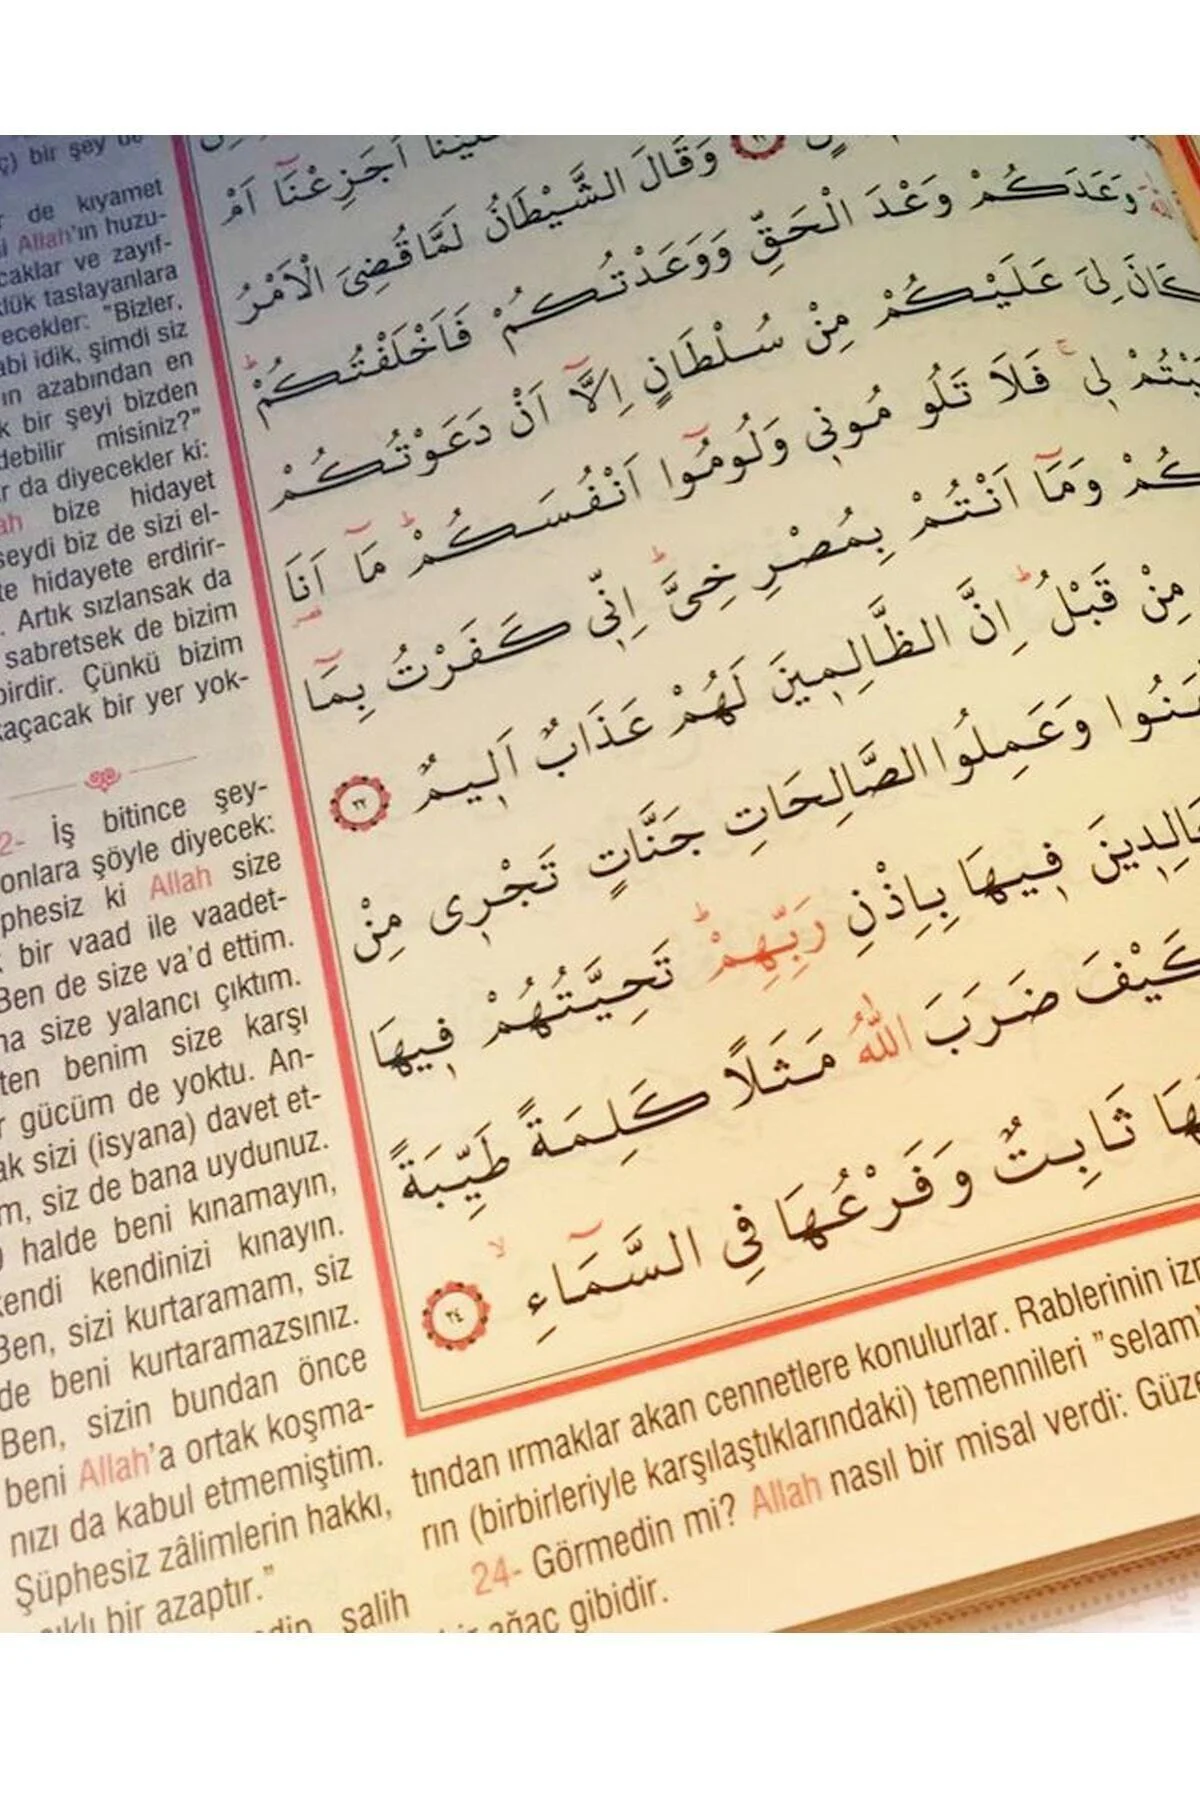 عَلَيْنَا اَجَزِعْنَا اَمْ
وَقَالَ الشَّيْطَانُ لَمَّا قُضِىَ الْاَمْرُ
وَعَدَكُمْ وَعْدَ الْحَقِّ وَوَعَدْتُكُمْ فَاَخْلَفْتُكُمْ
كَانَ لِىَ عَلَيْكُمْ مِنْ سُلْطَانٍ اِلَّٓا اَنْ دَعَوْتُكُمْ
لِى فَلَا تَلُومُونِى وَلُومُٓوا اَنْفُسَكُمْ مَٓا اَنَا
وَمَٓا اَنْتُمْ بِمُصْرِخِىَّ اِنِّى كَفَرْتُ بِمَٓا
مِنْ قَبْلُ اِنَّ الظَّالِمِينَ لَهُمْ عَذَابٌ اَلِيمٌ ٢٢
وَعَمِلُوا الصَّالِحَاتِ جَنَّاتٍ تَجْرِى مِنْ
فِيهَا بِاِذْنِ رَبِّهِمْ تَحِيَّتُهُمْ فِيهَا
كَيْفَ ضَرَبَ اللّٰهُ مَثَلًا كَلِمَةً طَيِّبَةً
ثَابِتٌ وَفَرْعُهَا فِى السَّمَٓاءِ ٢٤
bir şey
de kıyamet
Allah'ın huzu-
ve zayıf-
taslayanlara
"Bizler,
idik, şimdi siz
azabından en
bir şeyi bizden
misiniz?"
da diyecekler ki:
bize hidayet
biz de sizi el-
hidayete erdirir-
Artık sızlansak da
sabretsek de bizim
birdir. Çünkü bizim
kaçacak bir yer yok-
2- İş bitince şey-
onlara şöyle diyecek:
ki Allah size
bir vaad ile vaadet-
Ben de size va'd ettim.
size yalancı çıktım.
benim size karşı
gücüm de yoktu. An-
sizi (isyana) davet et-
siz de bana uydunuz.
halde beni kınamayın,
kendi kendinizi kınayın.
Ben, sizi kurtaramam, siz
de beni kurtaramazsınız.
Ben, sizin bundan önce
beni Allah'a ortak koşma-
nızı da kabul etmemiştim.
Şüphesiz zâlimlerin hakkı,
bir azaptır."
salih
tından ırmaklar akan cennetlere konulurlar. Rablerinin
rın (birbirleriyle karşılaştıklarındaki) temennileri "selam
24- Görmedin mi? Allah nasıl bir misal verdi:
ağaç gibidir.